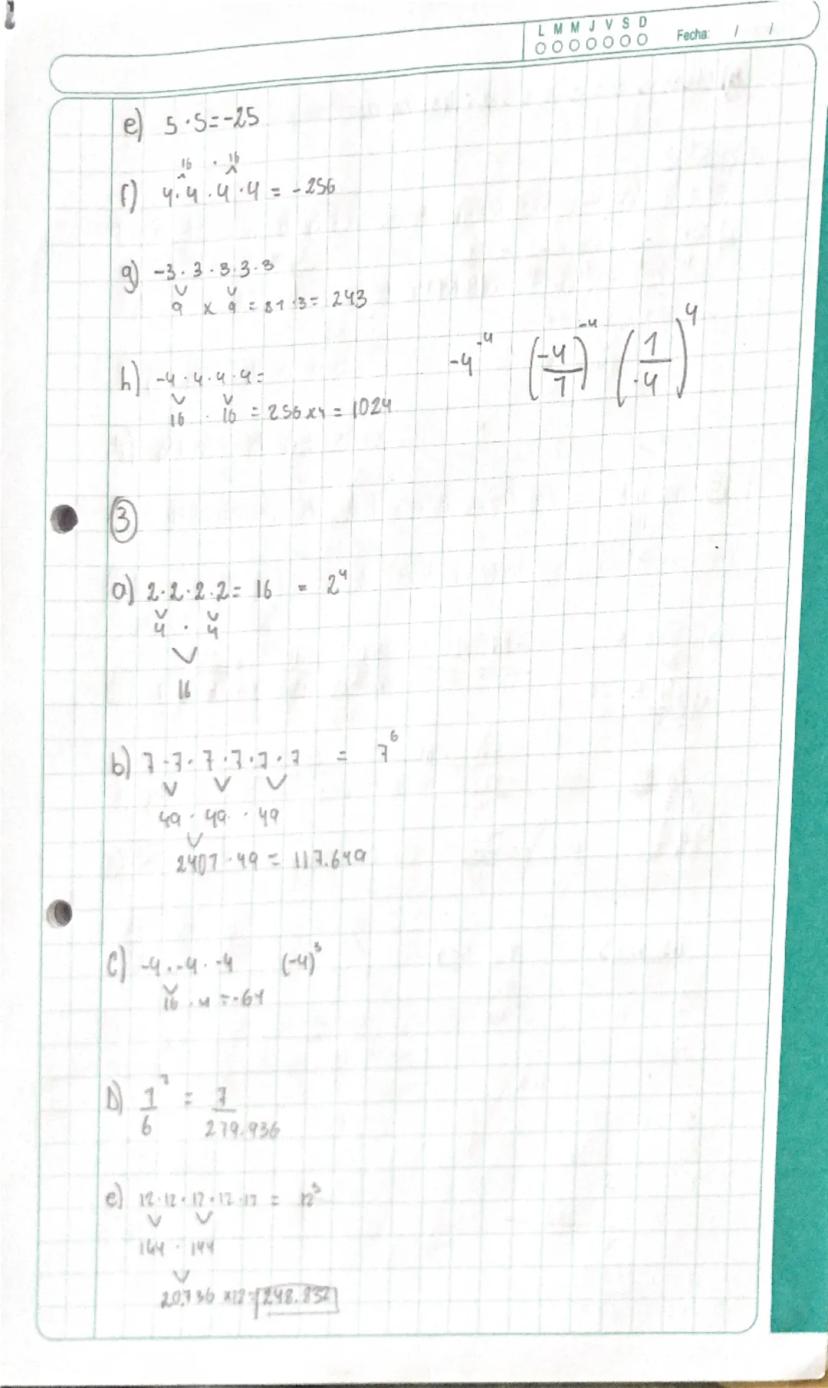 L M M J V S D
Fecha: / /
e) 5 · 5 = -25
16 · 16
f) 4 · 4 · 4 · 4 = -256
g) -3 · 3 · 3 · 3 · 3
9 x 9 = 81 · 3 = 243
h) -4 · 4 · 4 · 4 =
16 · 16 = 256 x 4 = 1024
-4⁻⁴ (-4/1)⁻⁴ (1/-4)⁴
3
a) 2 · 2 · 2 · 2 = 16 = 2⁴
4 · 4
16
b) 7 · 7 · 7 · 7 · 7 · 7 = 7⁶
49 · 49 · 49
2401 · 49 = 117.649
c) -4 · -4 · -4 (-4)³
16 · -4 = -64
D) 1/6⁷ = 1/279.936
e) 12 · 12 · 12 · 12 · 12 = 12⁵
144 · 144
20.736 x 12 = 248.832